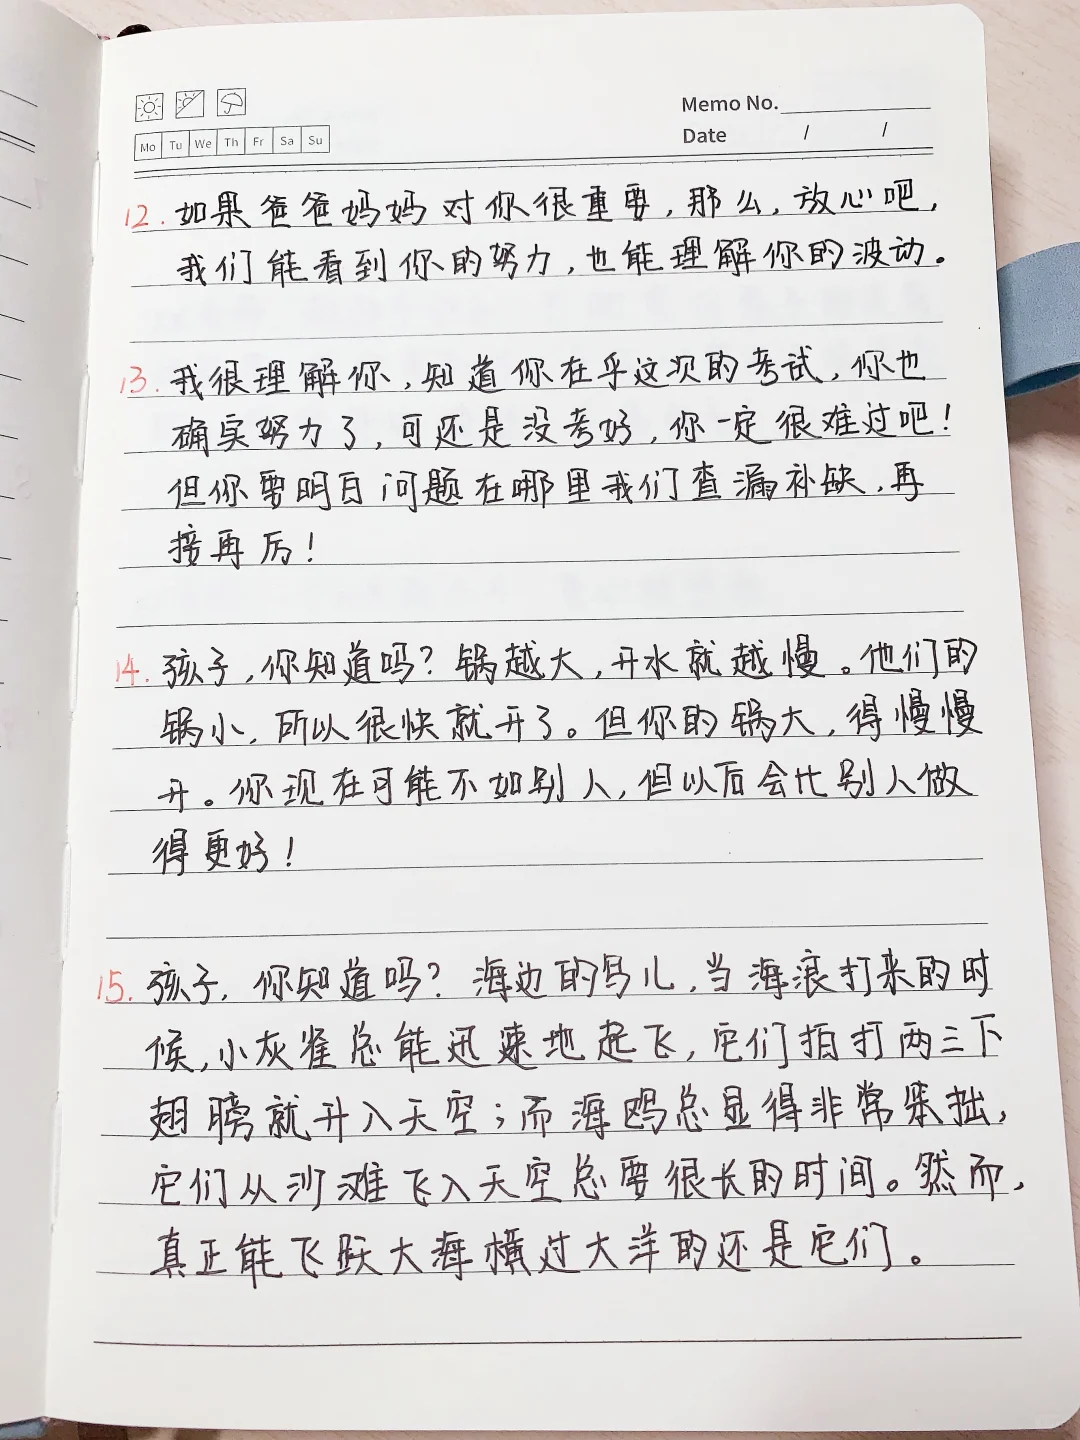 Memo No.
Mo Tu We Th Fr Sa Su
Date / /
12. 如果爸爸妈妈对你很重要，那么，放心吧，
我们能看到你的努力，也能理解你的波动。
13. 我很理解你，知道你在乎这次的考试，你也
确实努力了，可还是没考好，你一定很难过吧！
但你要明白问题在哪里我们查漏补缺，再
接再厉！
14. 孩子，你知道吗？锅越大，开水就越慢。他们的
锅小，所以很快就开了。但你的锅大，得慢慢
开。你现在可能不如别人，但以后会比别人做
得更好！
15. 孩子，你知道吗？海边的鸟儿，当海浪打来的时
候，小灰雀总能迅速地起飞，它们拍打两三下
翅膀就升入天空；而海鸥总显得非常笨拙，
它们从沙滩飞入天空总要很长的时间。然而，
真正能飞跃大海横过大洋的还是它们。